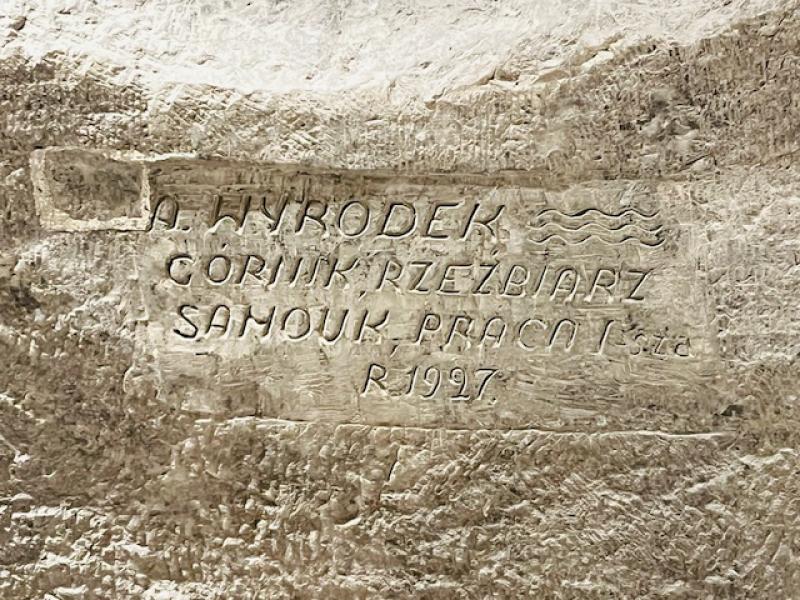 A. WYRODEK
GÓRNIK, RZEŹBIARZ
SAMOUK, PRACA 1-sza
R. 1927.